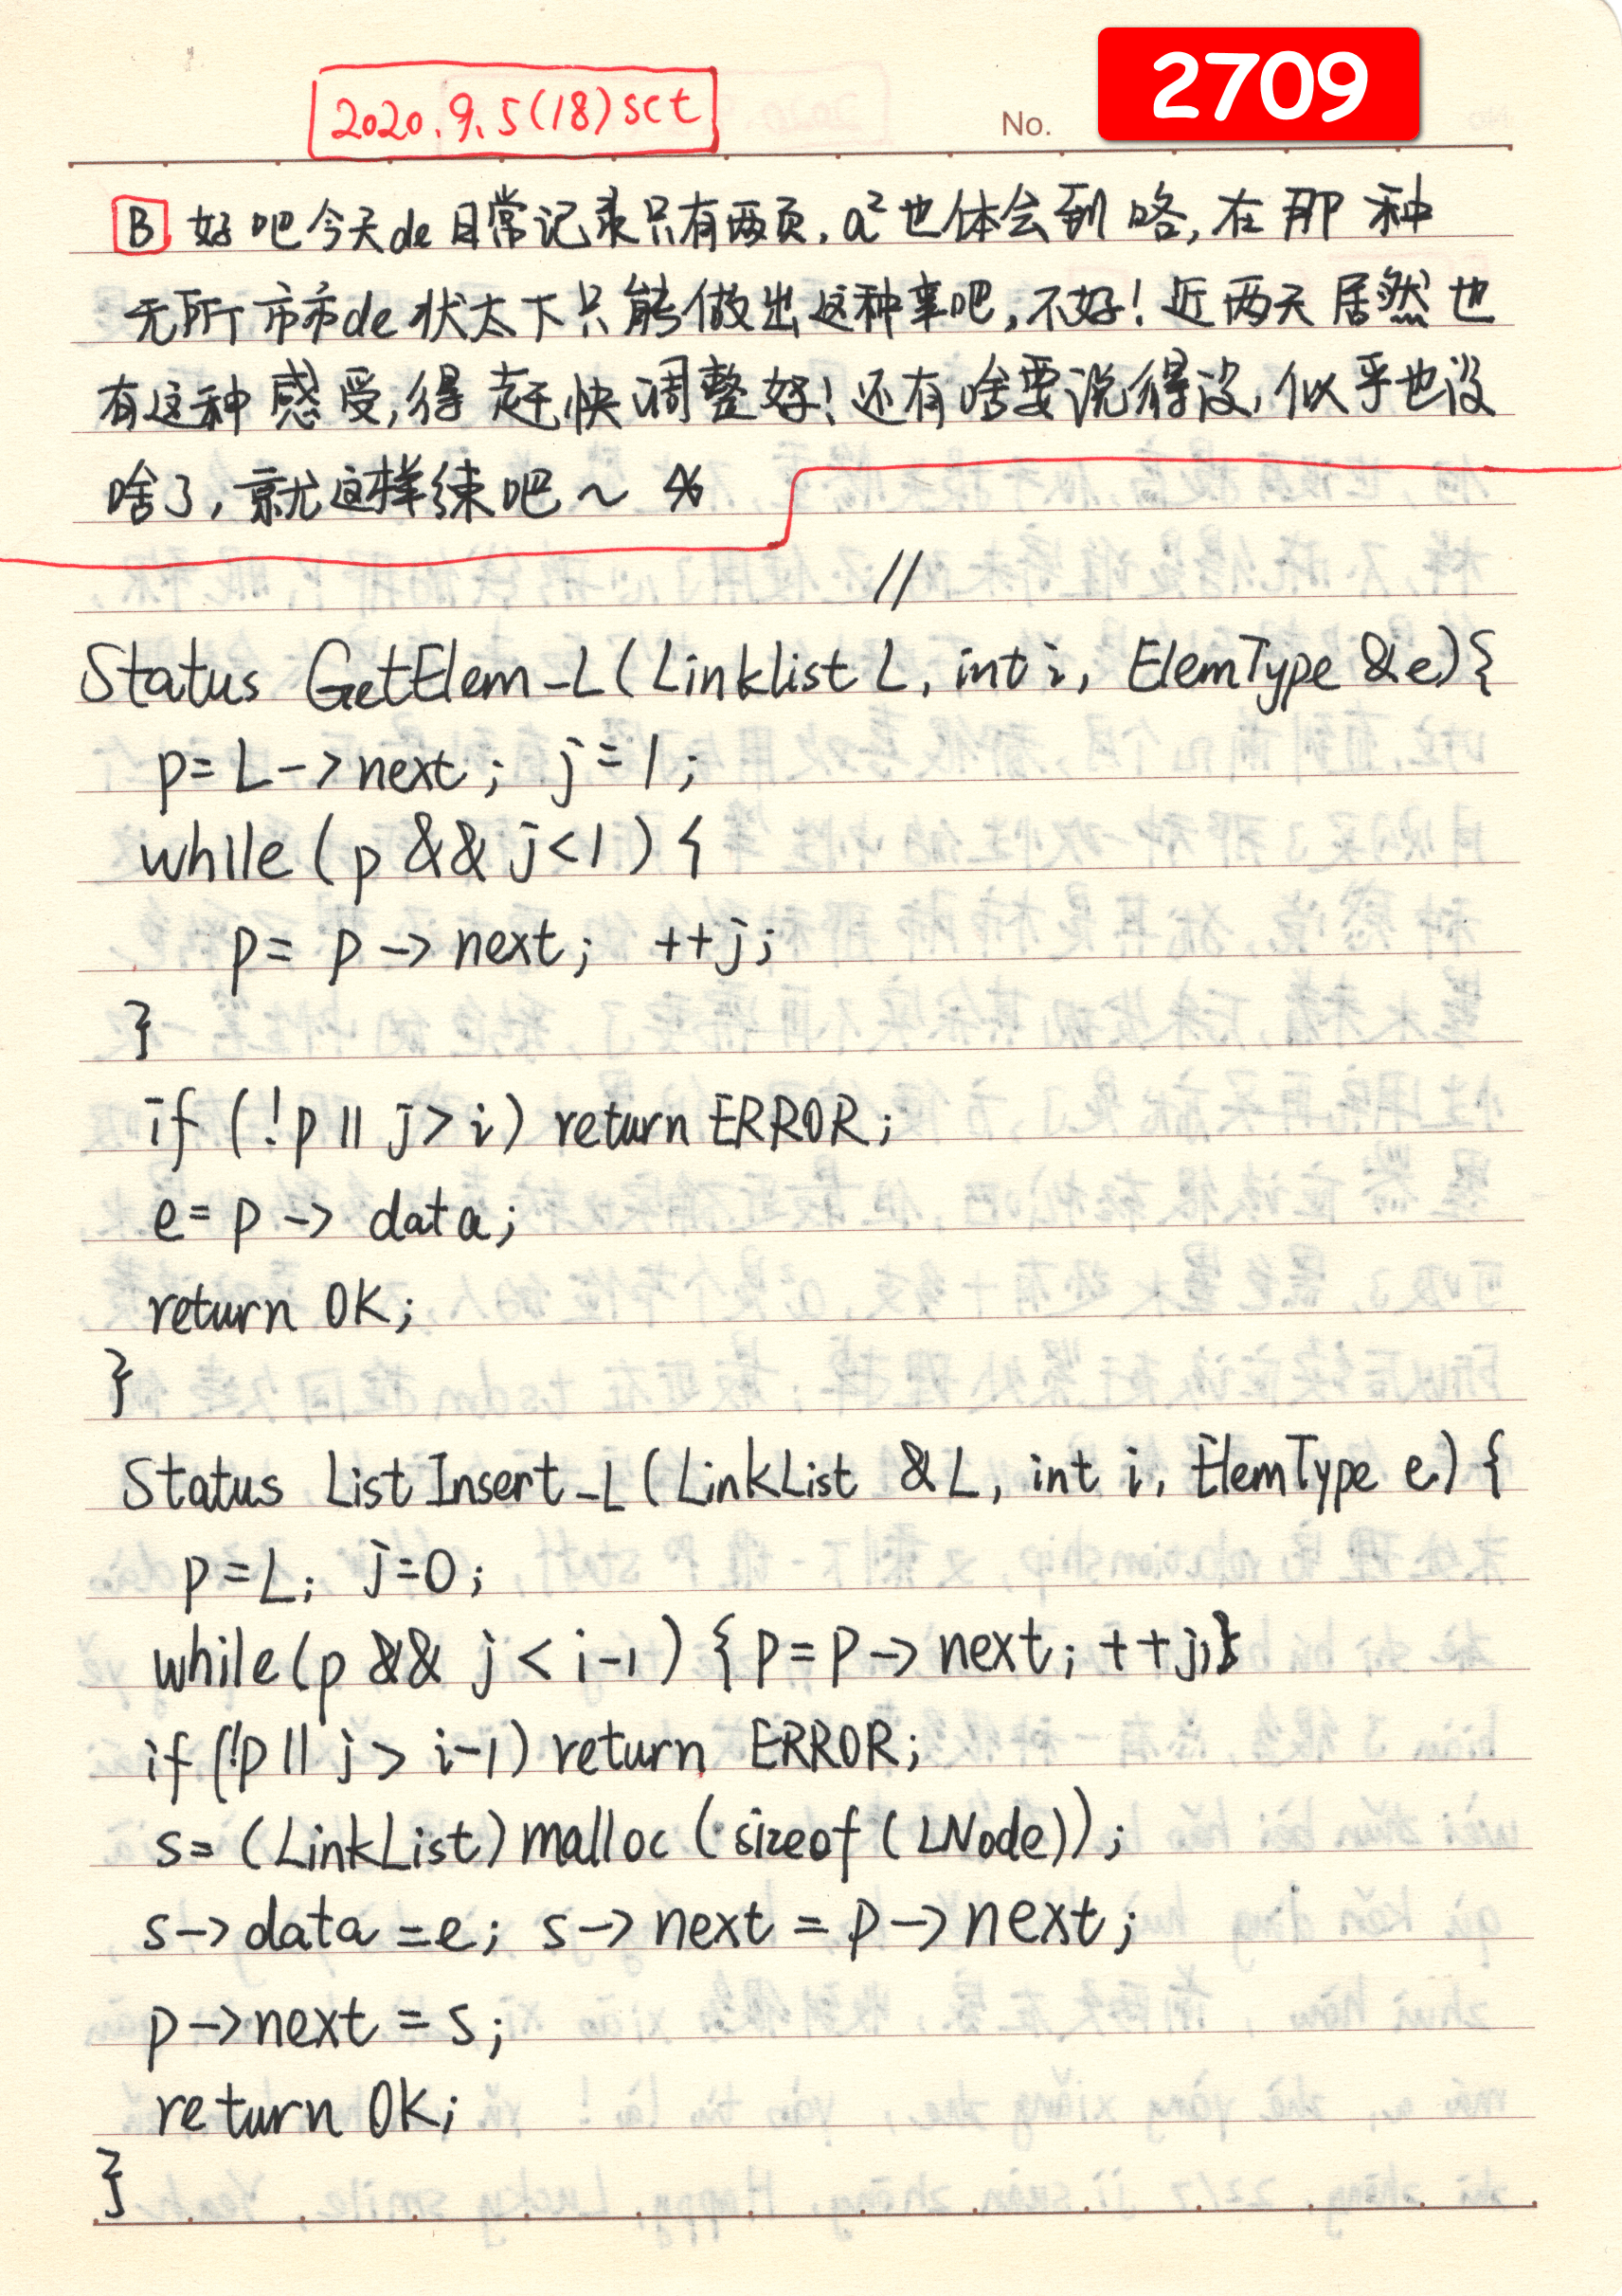 2020.9.5(18)sct
No.
2709
B 好吧今天de日常记录只有两页,a²也体会到咯,在那种
无所市市de状太下只能做出这种事吧,不好!近两天居然也
有这种感受,得赶快调整好!还有啥要说得没,似乎也没
啥了,就这样练吧~
//
Status GetElem-L(Linklist L, int i, ElemType &e){
p=L->next; j=1;
while(p && j<1){
p= p->next; ++j;
}
if (!p || j>i) return ERROR;
e=p->data;
return OK;
}
Status ListInsert-L(LinkList &L, int i, ElemType e){
p=L; j=0;
while(p && j<i-1){p=p->next; ++j;}
if(!p || j>i-1) return ERROR;
s=(LinkList)malloc(sizeof(LNode));
s->data=e; s->next=p->next;
p->next=s;
return OK;
}